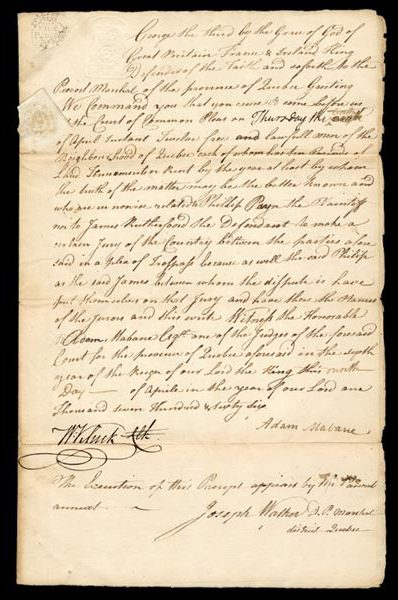 George the third by the Grace of God of
Great Britain France & Ireland King
Defender of the Faith and soforth to the
Provost Marshal of the province of Quebec Greeting
We Command you that you cause to come before us
the Court of Common Pleas on Thursday the
of April Instant Twelve free and lawfull men of the
Neighbourhood of Quebec each of whom has ten Pounds of
Land Tennements or Rent by the year at least by whom
the truth of the matter may be the better known and
who are in nowise related to Phillip Payn the Plaintiff
nor to James Rutherfoord the Defendant to make a
certain Jury of the Country between the parties afore
said in a plea of Trespass because as well the said Philip
as the said James between whom the dispute is have
put themselves on that Jury and have there the Names
of the Jurors and this writ Witness the Honorable
Adam Mabane Esqr. one of the Judges of the foresaid
Court for the province of Quebec aforesaid in the sixth
year of the Reign of our Lord the King this
Day of Aprile in the year of our Lord one
thousand seven Hundred & sixty six
Adam Mabane
Clk
The Execution of this Precept appears by the Pannel
annext
Joseph Walker D. P. Marshal
district Quebec